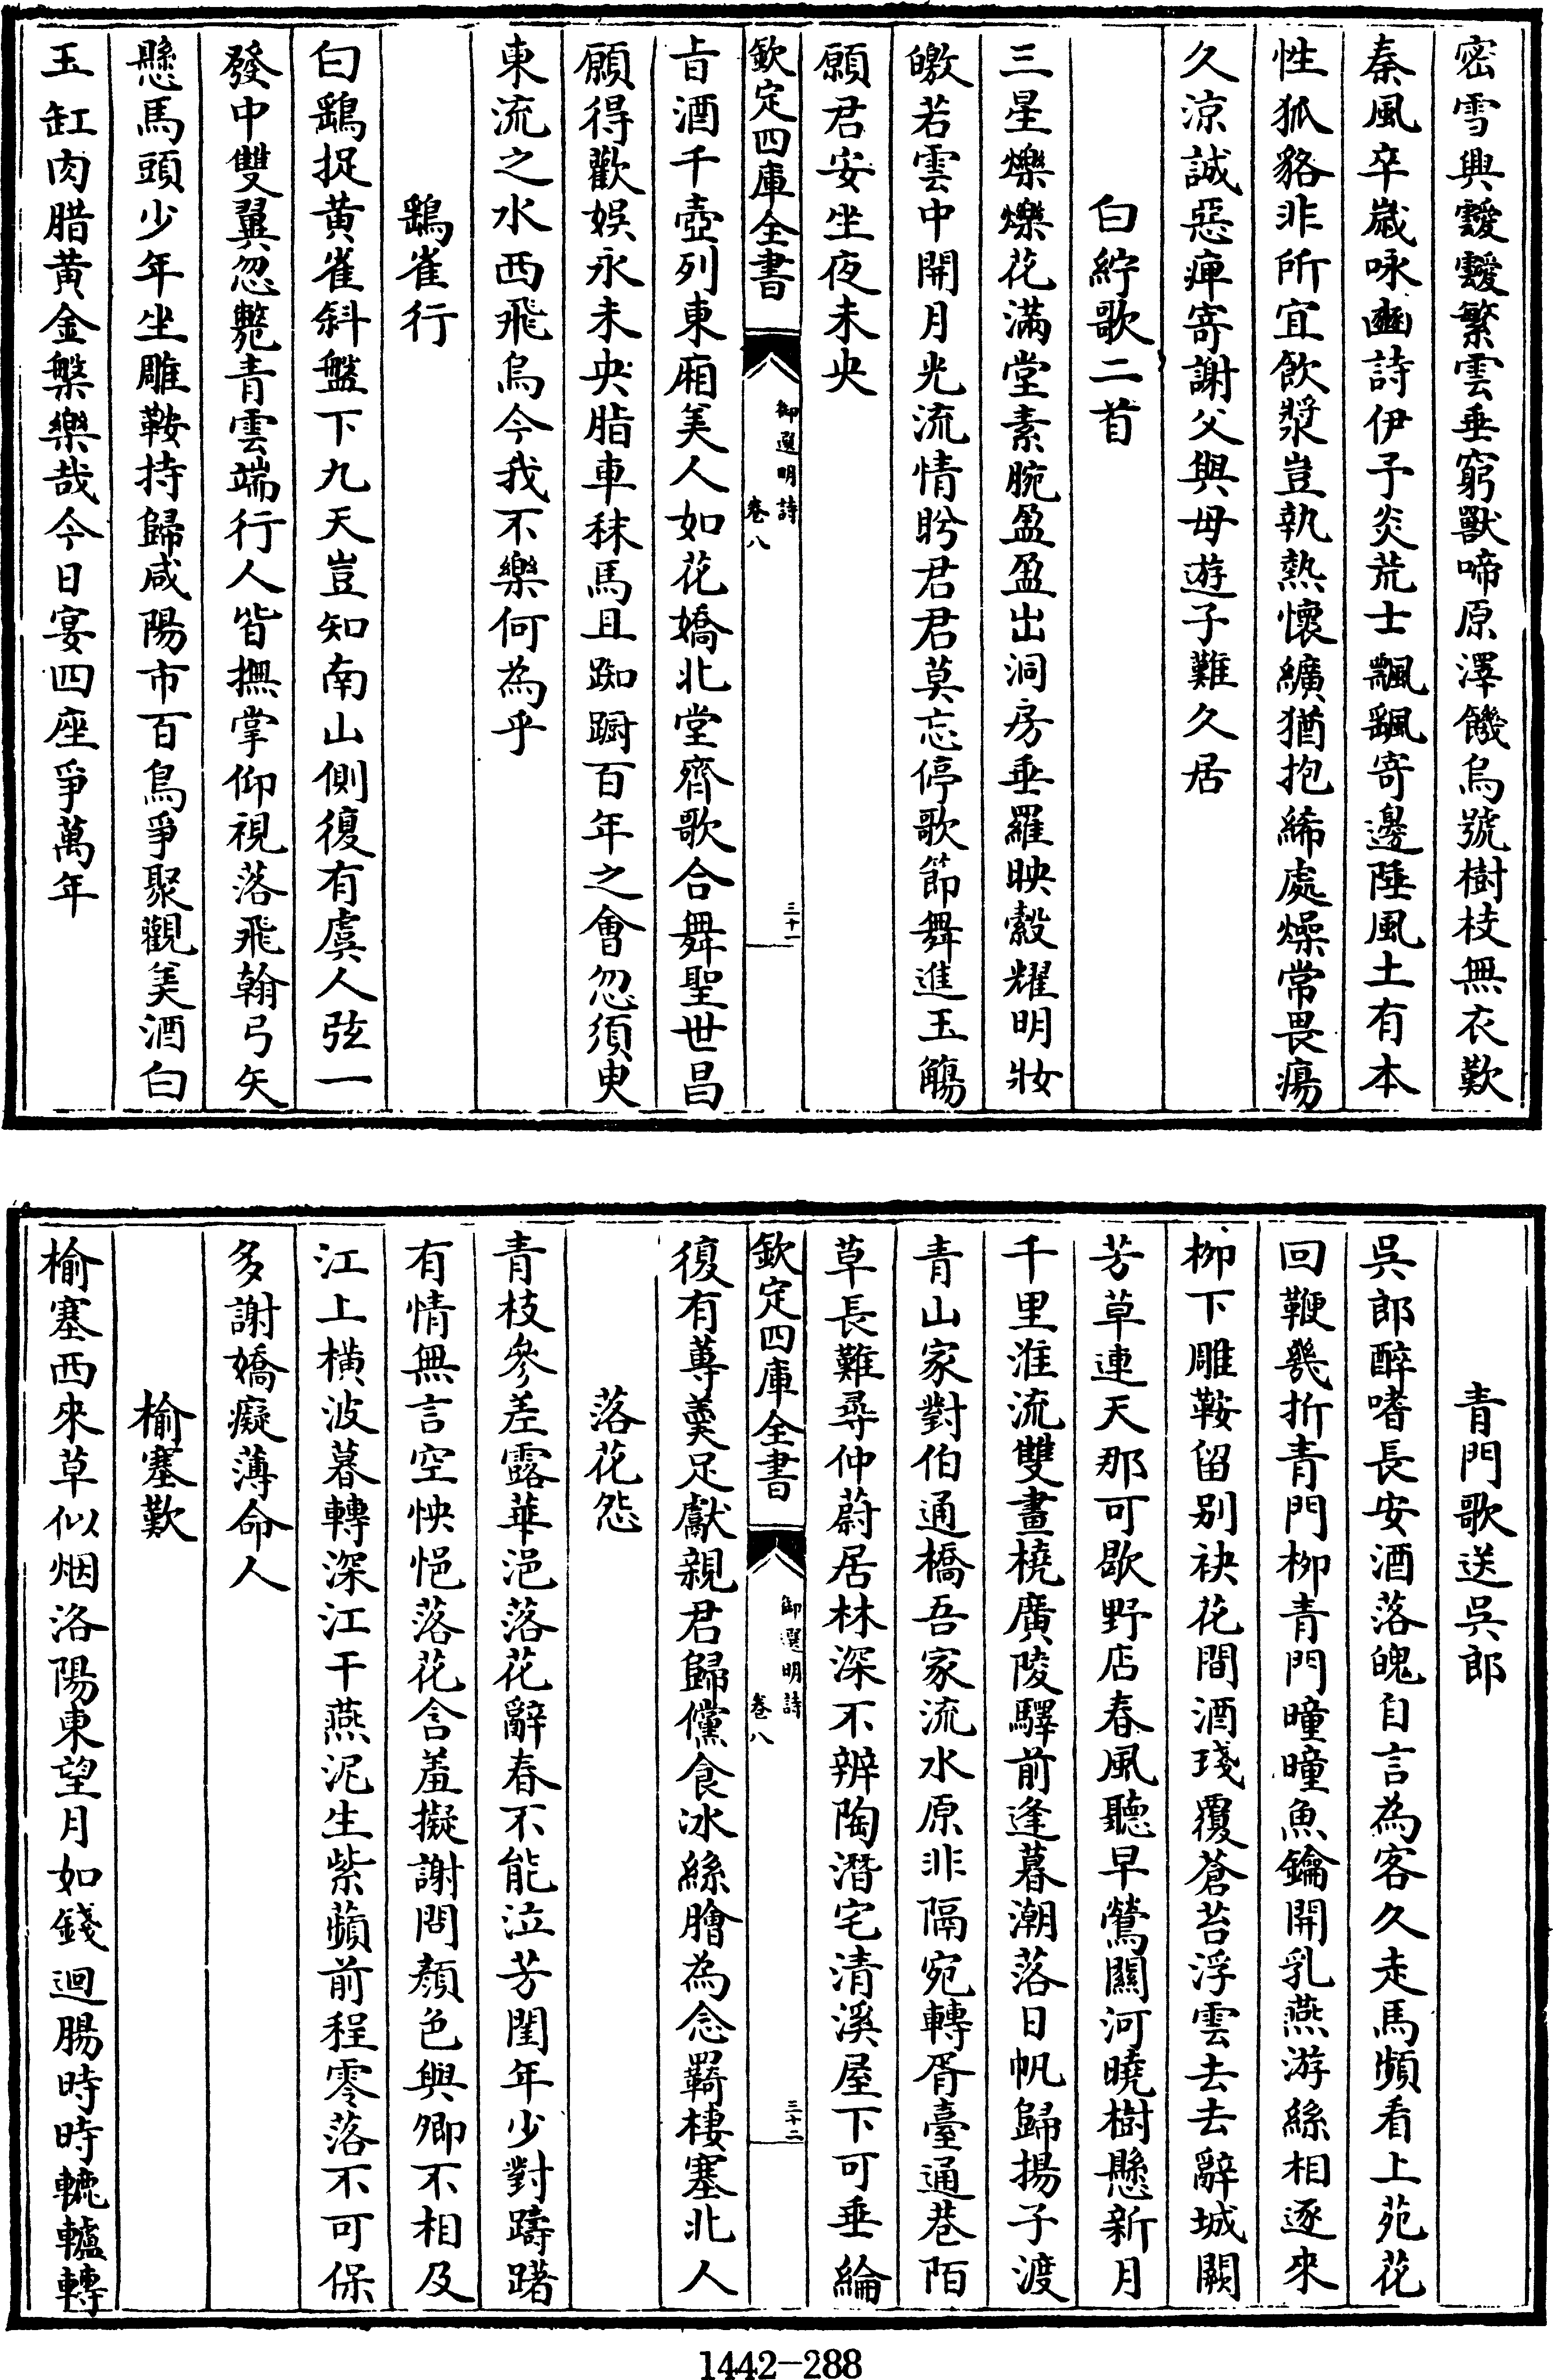 密雪興靉靉繁雲垂窮獸啼原澤饑烏號樹枝無衣歎
秦風卒歲咏豳詩伊予炎荒士飄飄寄邊陲風土有本
性狐貉非所宜飲漿豈執熱懷纊猶抱絺處燥常畏瘍
久涼誠惡痺寄謝父與母遊子難久居
白紵歌二首
三星爍爍花滿堂素腕盈盈出洞房垂羅映縠耀明妝
皦若雲中開月光流情盻君君莫忘停歌節舞進玉觴
願君安坐夜未央
欽定四庫全書
御選明詩
卷八
三十一
旨酒千壺列東廂美人如花嬌北堂齊歌合舞聖世昌
願得歡娱永未央脂車秣馬且踟蹰百年之會忽須臾
東流之水西飛烏今我不樂何為乎
鷂雀行
白鷂捉黄雀斜盤下九天豈知南山側復有虞人弦一
發中雙翼忽斃青雲端行人皆撫掌仰視落飛翰弓矢
懸馬頭少年坐雕鞍持歸咸陽市百鳥爭聚觀美酒白
玉缸肉腊黄金槃樂哉今日宴四座爭萬年
青門歌送吳郎
吳郎醉嗜長安酒落魄自言為客久走馬頻看上苑花
回鞭幾折青門柳青門曈曈魚鑰開乳燕游絲相逐來
柳下雕鞍留别袂花間酒琖覆蒼苔浮雲去去辭城闕
芳草連天那可歇野店春風聽早鶯關河曉樹懸新月
千里淮流雙畫橈廣陵驛前逢暮潮落日帆歸揚子渡
青山家對伯通橋吾家流水原非隔宛轉胥臺通巷陌
草長難尋仲蔚居林深不辨陶潛宅清溪屋下可垂綸
欽定四庫全書
御選明詩
卷八
三十二
復有蓴羮足獻親君歸儻食冰絲膾為念羇棲塞北人
落花怨
青枝參差露華浥落花辭春不能泣芳閨年少對躊躇
有情無言空怏悒落花含羞擬謝問顏色與卿不相及
江上橫波暮轉深江干燕泥生紫蘋前程零落不可保
多謝嬌癡薄命人
榆塞歎
榆塞西來草似烟洛陽東望月如錢迴腸時時轆轤轉
1442-288